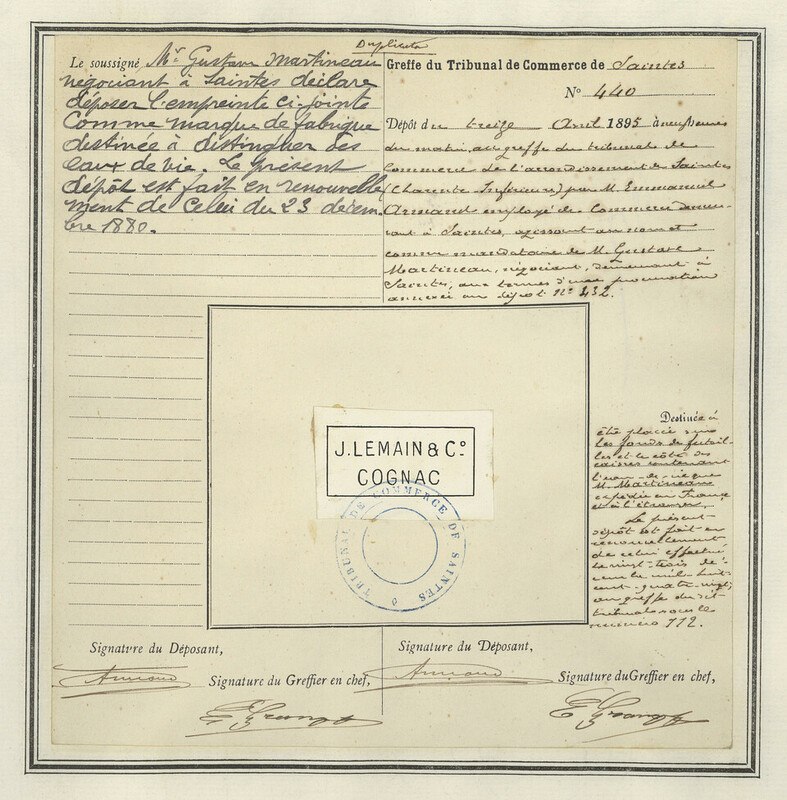 Duplicata
Le soussigné Mr. Gustave Martineau
négociant à Saintes déclare
déposer l'empreinte ci-jointe
Comme marque de fabrique
destinée à distinguer des
eaux de vie. Le présent
dépôt est fait en renouvelle
ment de celui du 23 décem-
bre 1880.
Greffe du Tribunal de Commerce de Saintes
No 440
Dépôt du treize Avril 1895 à neuf heures
du matin, au greffe du tribunal de
Commerce de l'arrondissement de Saintes
(Charente Inférieure) par M. Emmanuel
Armand employé de Commerce demeu-
rant à Saintes, agissant au nom et
comme mandataire de M. Gustave
Martineau, négociant, demeurant à
Saintes, aux termes d'une procuration
annexée au dépôt No 432.
J. LEMAIN & Co.
COGNAC
TRIBUNAL DE COMMERCE DE SAINTES
Destinée à
être placée sur
les fonds de futail-
les et le côté des
caisses contenant
l'eau-de-vie que
M. Martineau
expédie en France
et à l'étranger.
Le présent
dépôt est fait en
renouvellement
de celui effectué
le vingt-trois dé-
cembre mil-huit-
cent-quatre-vingt,
au greffe du dit
tribunal sous le
numéro 112.
Signature du Déposant,
Armand
Signature du Greffier en chef,
Signature du Déposant,
Armand
Signature du Greffier en chef,